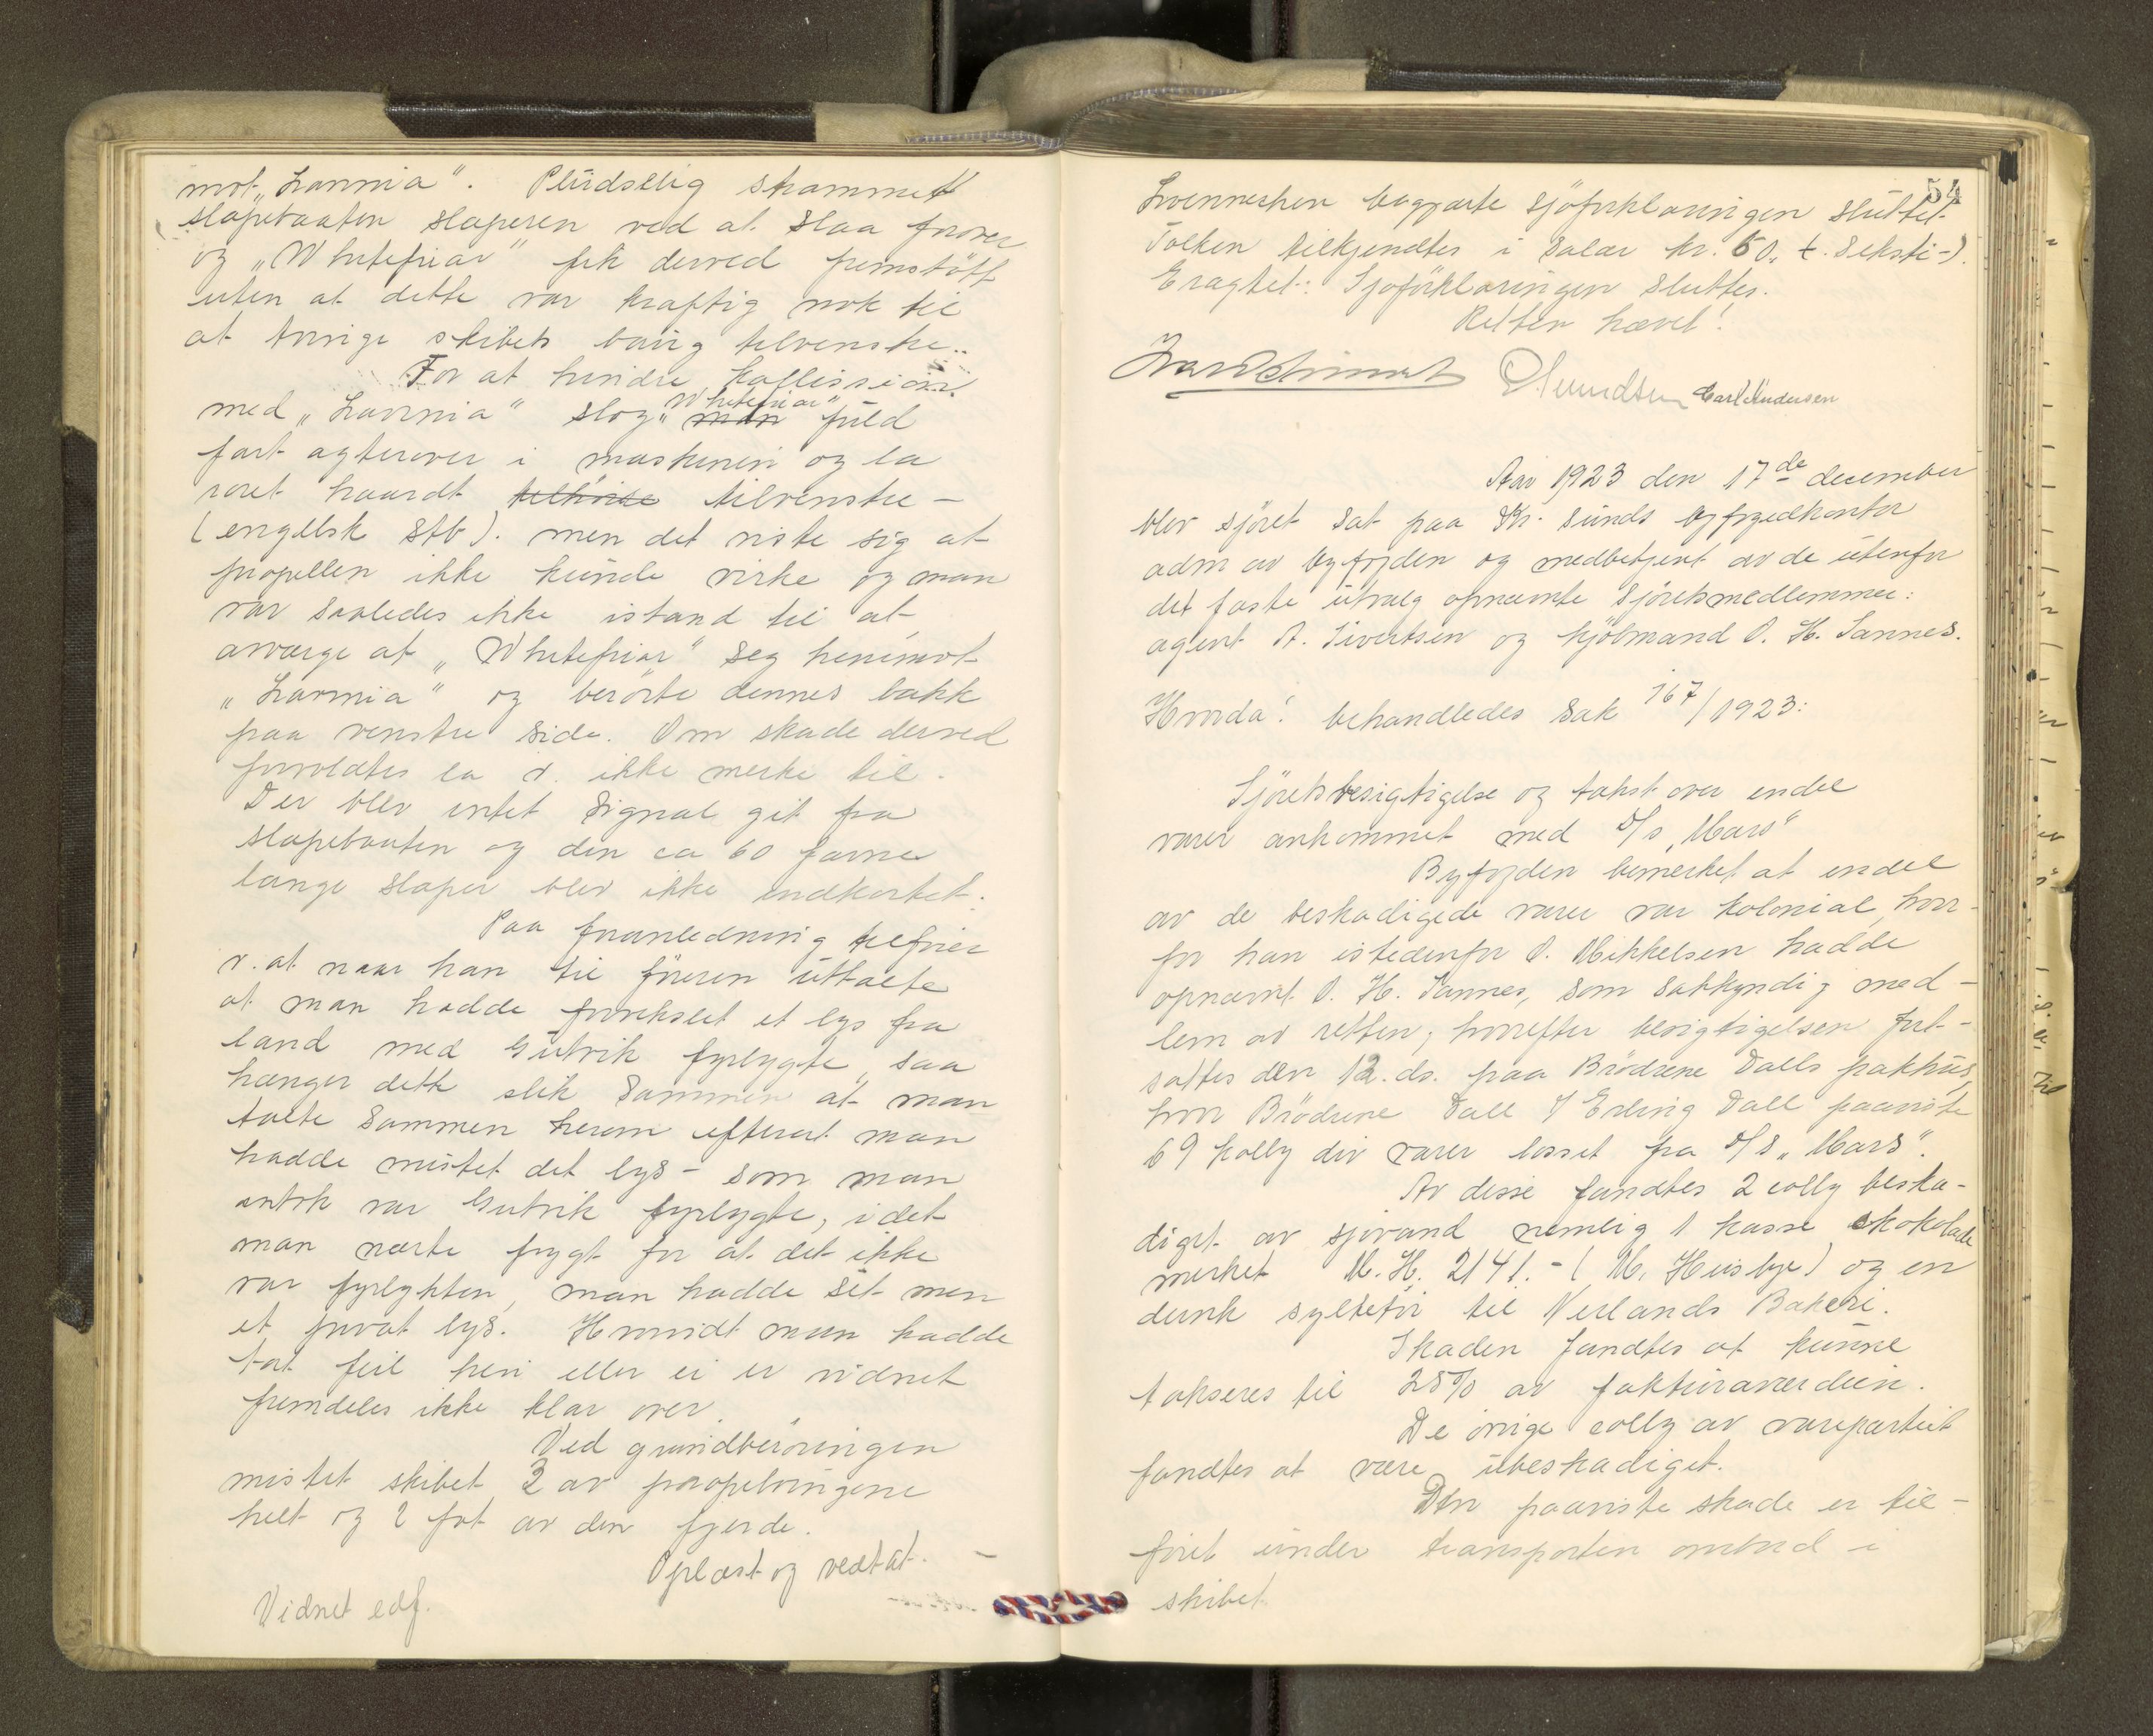 mot "Lavinia". Plüdselig strammet
slæpebaaten slæperen ved at slaa forover
og "Whitefriar" fik derved fremstøtt
uten at dette var kraftig nok til
at tvinge skibets baug tilvenstre.
For at hindre kollission
med "Lavinia" slog "Whitefriar" man fuld
fart agterover i maskinen og la
roret haardt tilhøire tilvenstre -
(engelsk stb). men det viste sig at
propellen ikke kunde virke og man
var saaledes ikke istand til at
avværge at "Whitefriar" seg henimot
"Lavinia" og berørte dennes bakk
paa venstre side. Om skade derved
forvoldtes la v. ikke merke til.
Der blev intet signal git fra
slæpebaaten og den ca 60 favne
lange slæper blev ikke indkortet.
Paa foranledning tilføier
v. at naar han til føreren uttalte
at man hadde forvekslet et lys fra
land med Gutvik fyrlygte, saa
hænger dette slik sammen at man
talte sammen herom efterat man
hadde mistet det lys - som man
antok var Gutvik fyrlygte, idet
man nærte frygt for at det ikke
var fyrlykten, man hadde set men
et privat lys. Hvorvidt man hadde
tat feil heri eller ei er vidnet
fremdeles ikke klar over.
Ved grundberøringen
mistet skibet 3 av propelvingene
helt og 2 fot av den fjerde.
Oplæst og vedtat. -
Vidnet edf.
54
Lvenneshen begjærte sjøforklaringen sluttet.
Tolken tilkjendtes i salær kr. 60, t. seksti-).
Eragtet: Sjøforklaringen sluttes.
Retten hævet!
Carl Andersen
Aar 1923 den 17de december
blev sjøret sat paa Kr. sunds byfogedkontor
adm av byfogden og medbetjent av de utenfor
det faste utvalg opnævnte sjøretsmedlemmer:
agent A. Sivertsen og kjøbmand O. H. Sannes.
Hvorda! behandledes sak 167/1923:
Sjøretsbesigtigelse og takst over endel
varer ankommet med D/s "Mars"
Byfogden bemerket at endel
av de beskadigede varer var kolonial, hvor-
for han istedenfor O. Mikkelsen hadde
opnævnt O. H. Sannes, som sakkyndig med-
lem av retten; hvorefter besigtigelsen fort-
sattes den 12. ds. paa Brødrene Dalls pakhus,
hvor Brødrene Dall v/ Erling Dall paaviste
69 kolly div varer losset fra D/s "Mars".
Av disse fandtes 2 colly beska-
diget av sjøvand nemlig 1 kasse chokolade
merket M. H. 2141. - (M. Husby) og en
dunk syltetøi til Nerlands Bakeri.
Skaden fandtes at kunne
takseres til 25% av fakturaværdien.
De øvrige colly av varepartiet
fandtes at være ubeskadiget.
Den paaviste skade er til-
føiet under transporten ombord i
skibet.